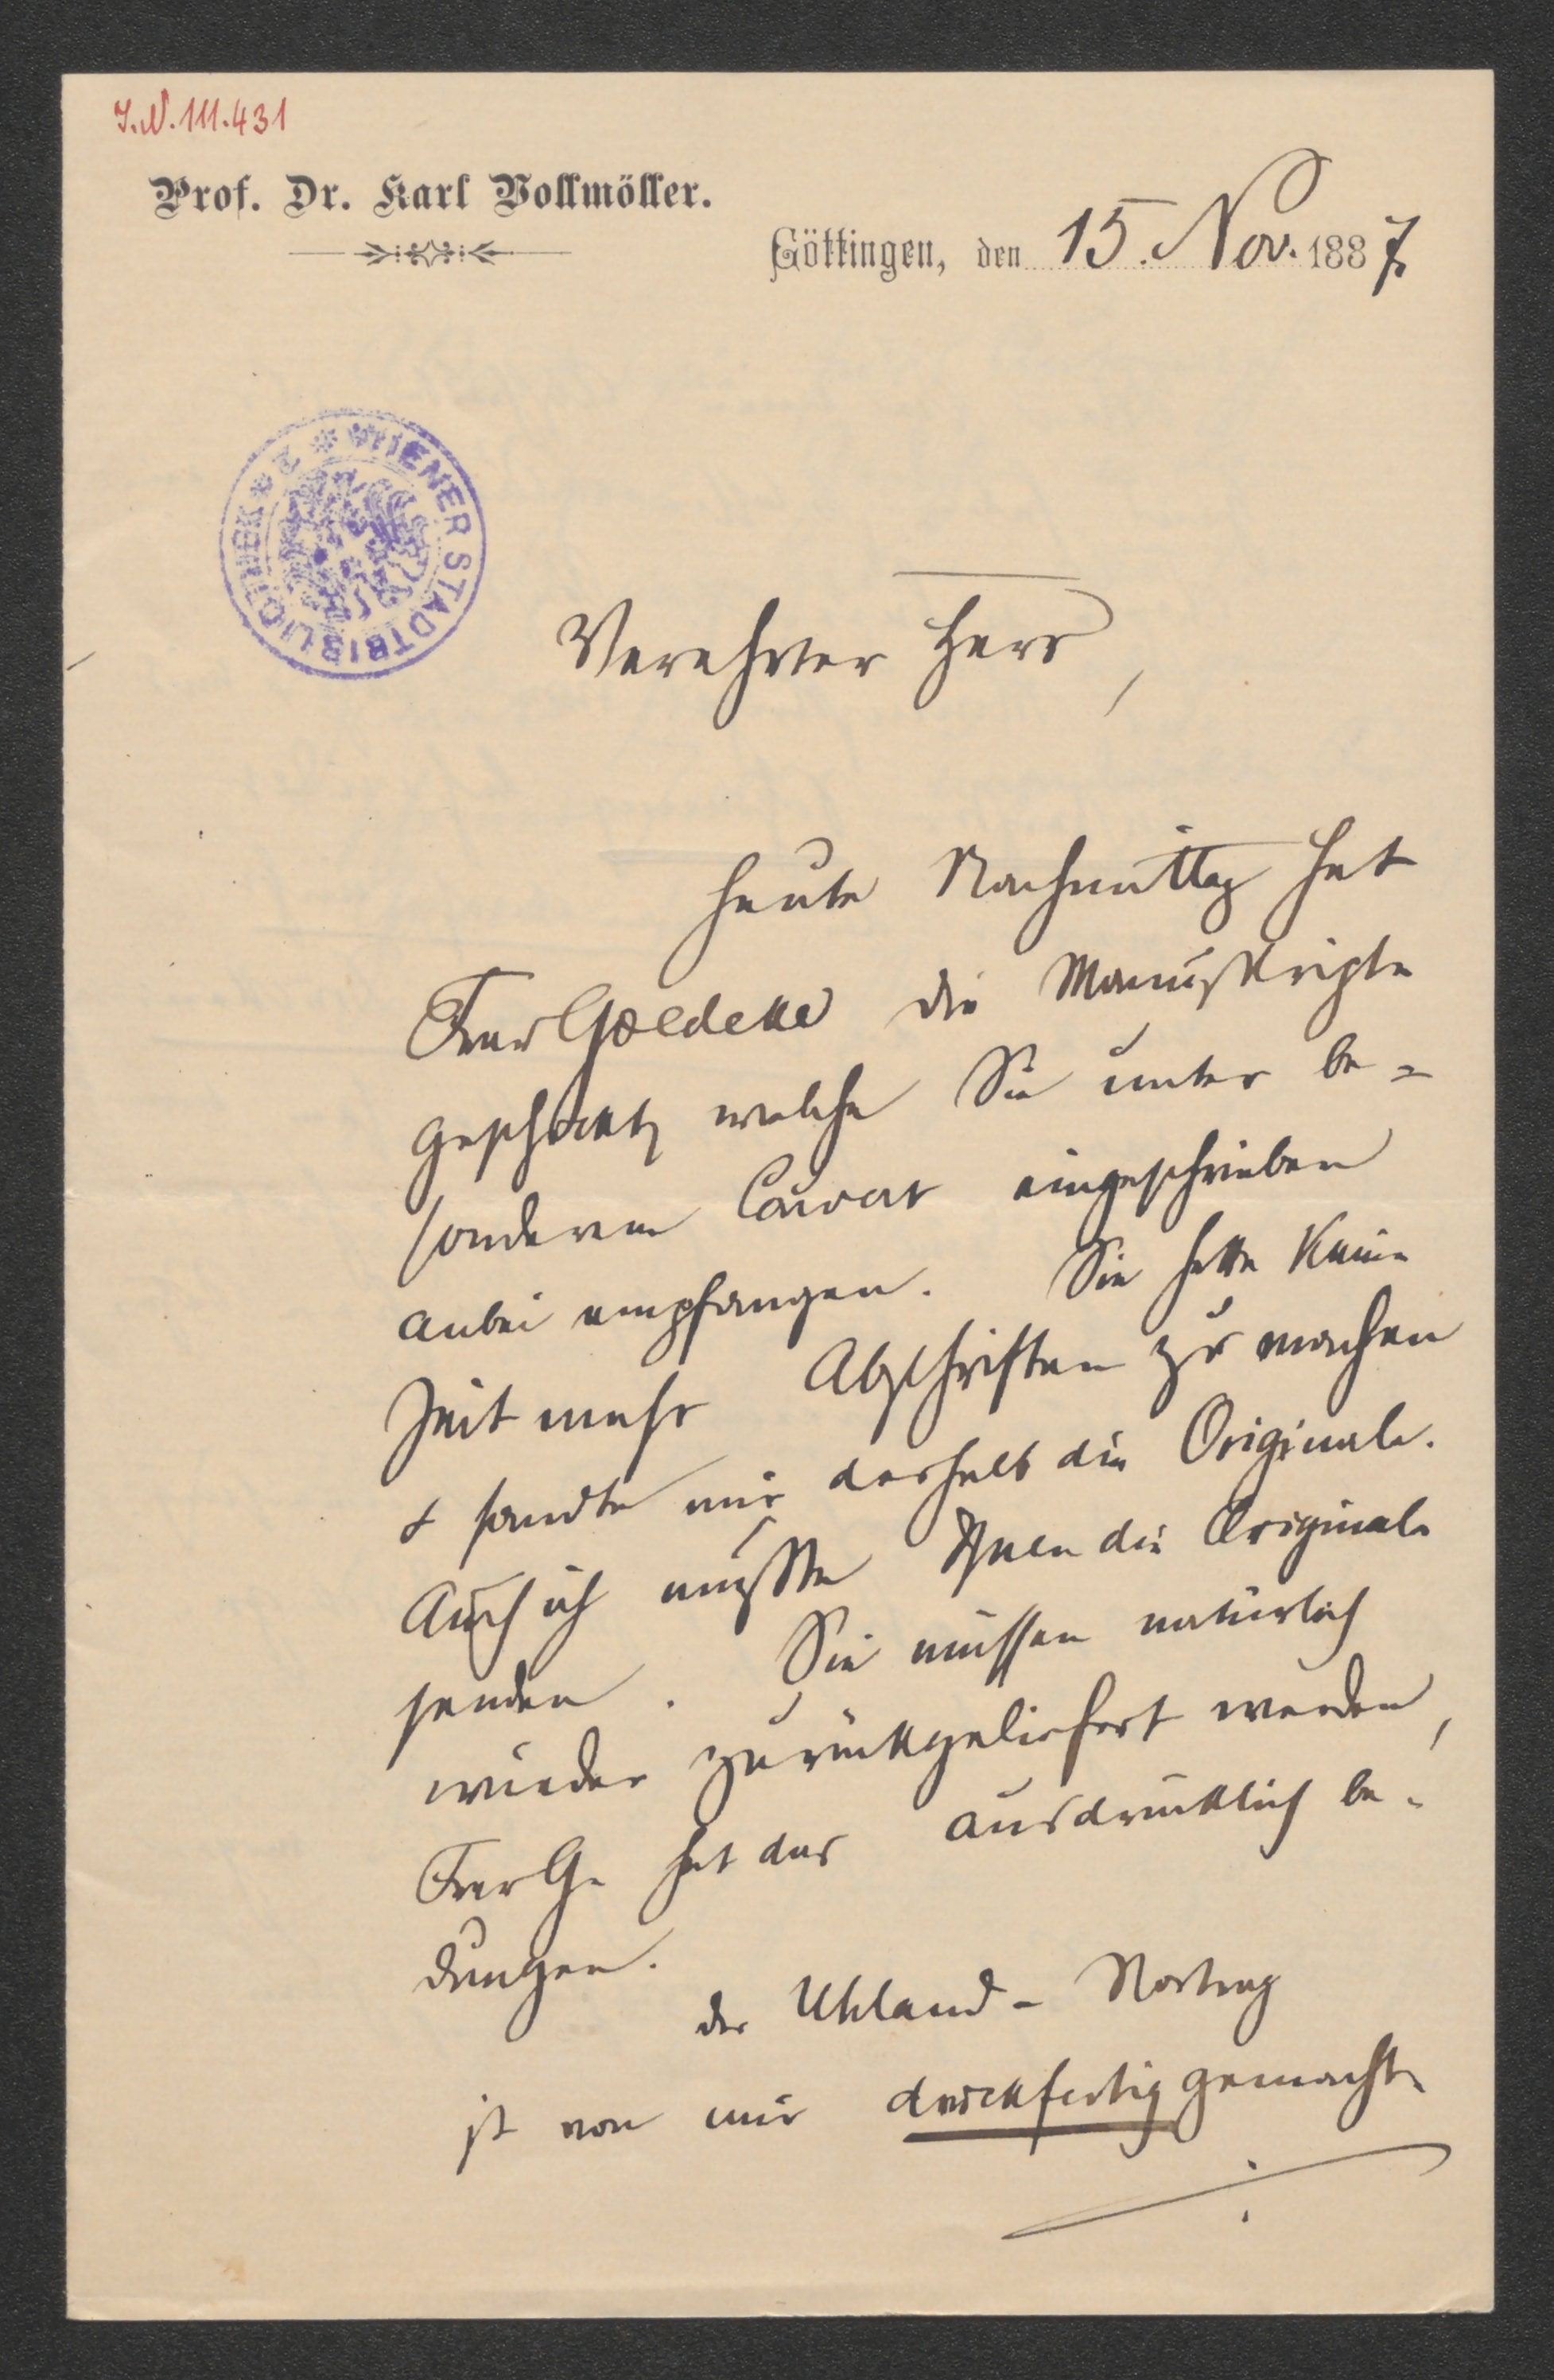 J.N. 111.431
Prof. Dr. Karl Vollmöller.
Göttingen, den 15. Nov. 1887
WIENER STADTBIBLIOTHEK
Verehrter Herr,
heute Nachmittag hat
Frau Goedeke die Manuskripte
geschickt, welche Sie unter be=
sonderem Couvert eingeschrieben
anbei empfangen. Sie hatte keine
Zeit mehr Abschriften zu machen
& sandte mir deshalb die Originale.
Auch ich musste Ihnen die Originale
senden. Sie müssen natürlich
wieder zurückgeliefert werden,
Frau G. hat das ausdrücklich be-
dungen.
Der Uhland-Vortrag
ist von mir druckfertig gemacht.